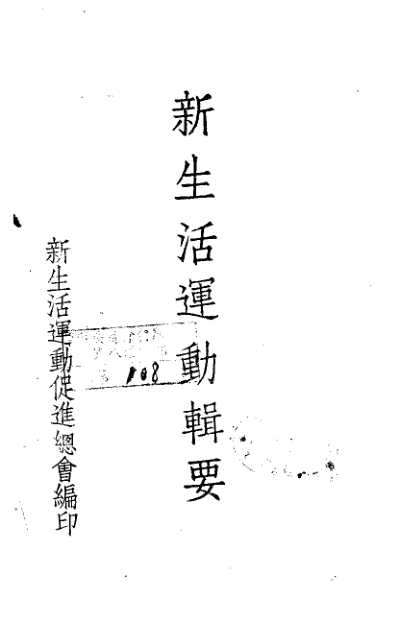 新生活運動輯要
新生活運動促進總會編印
108